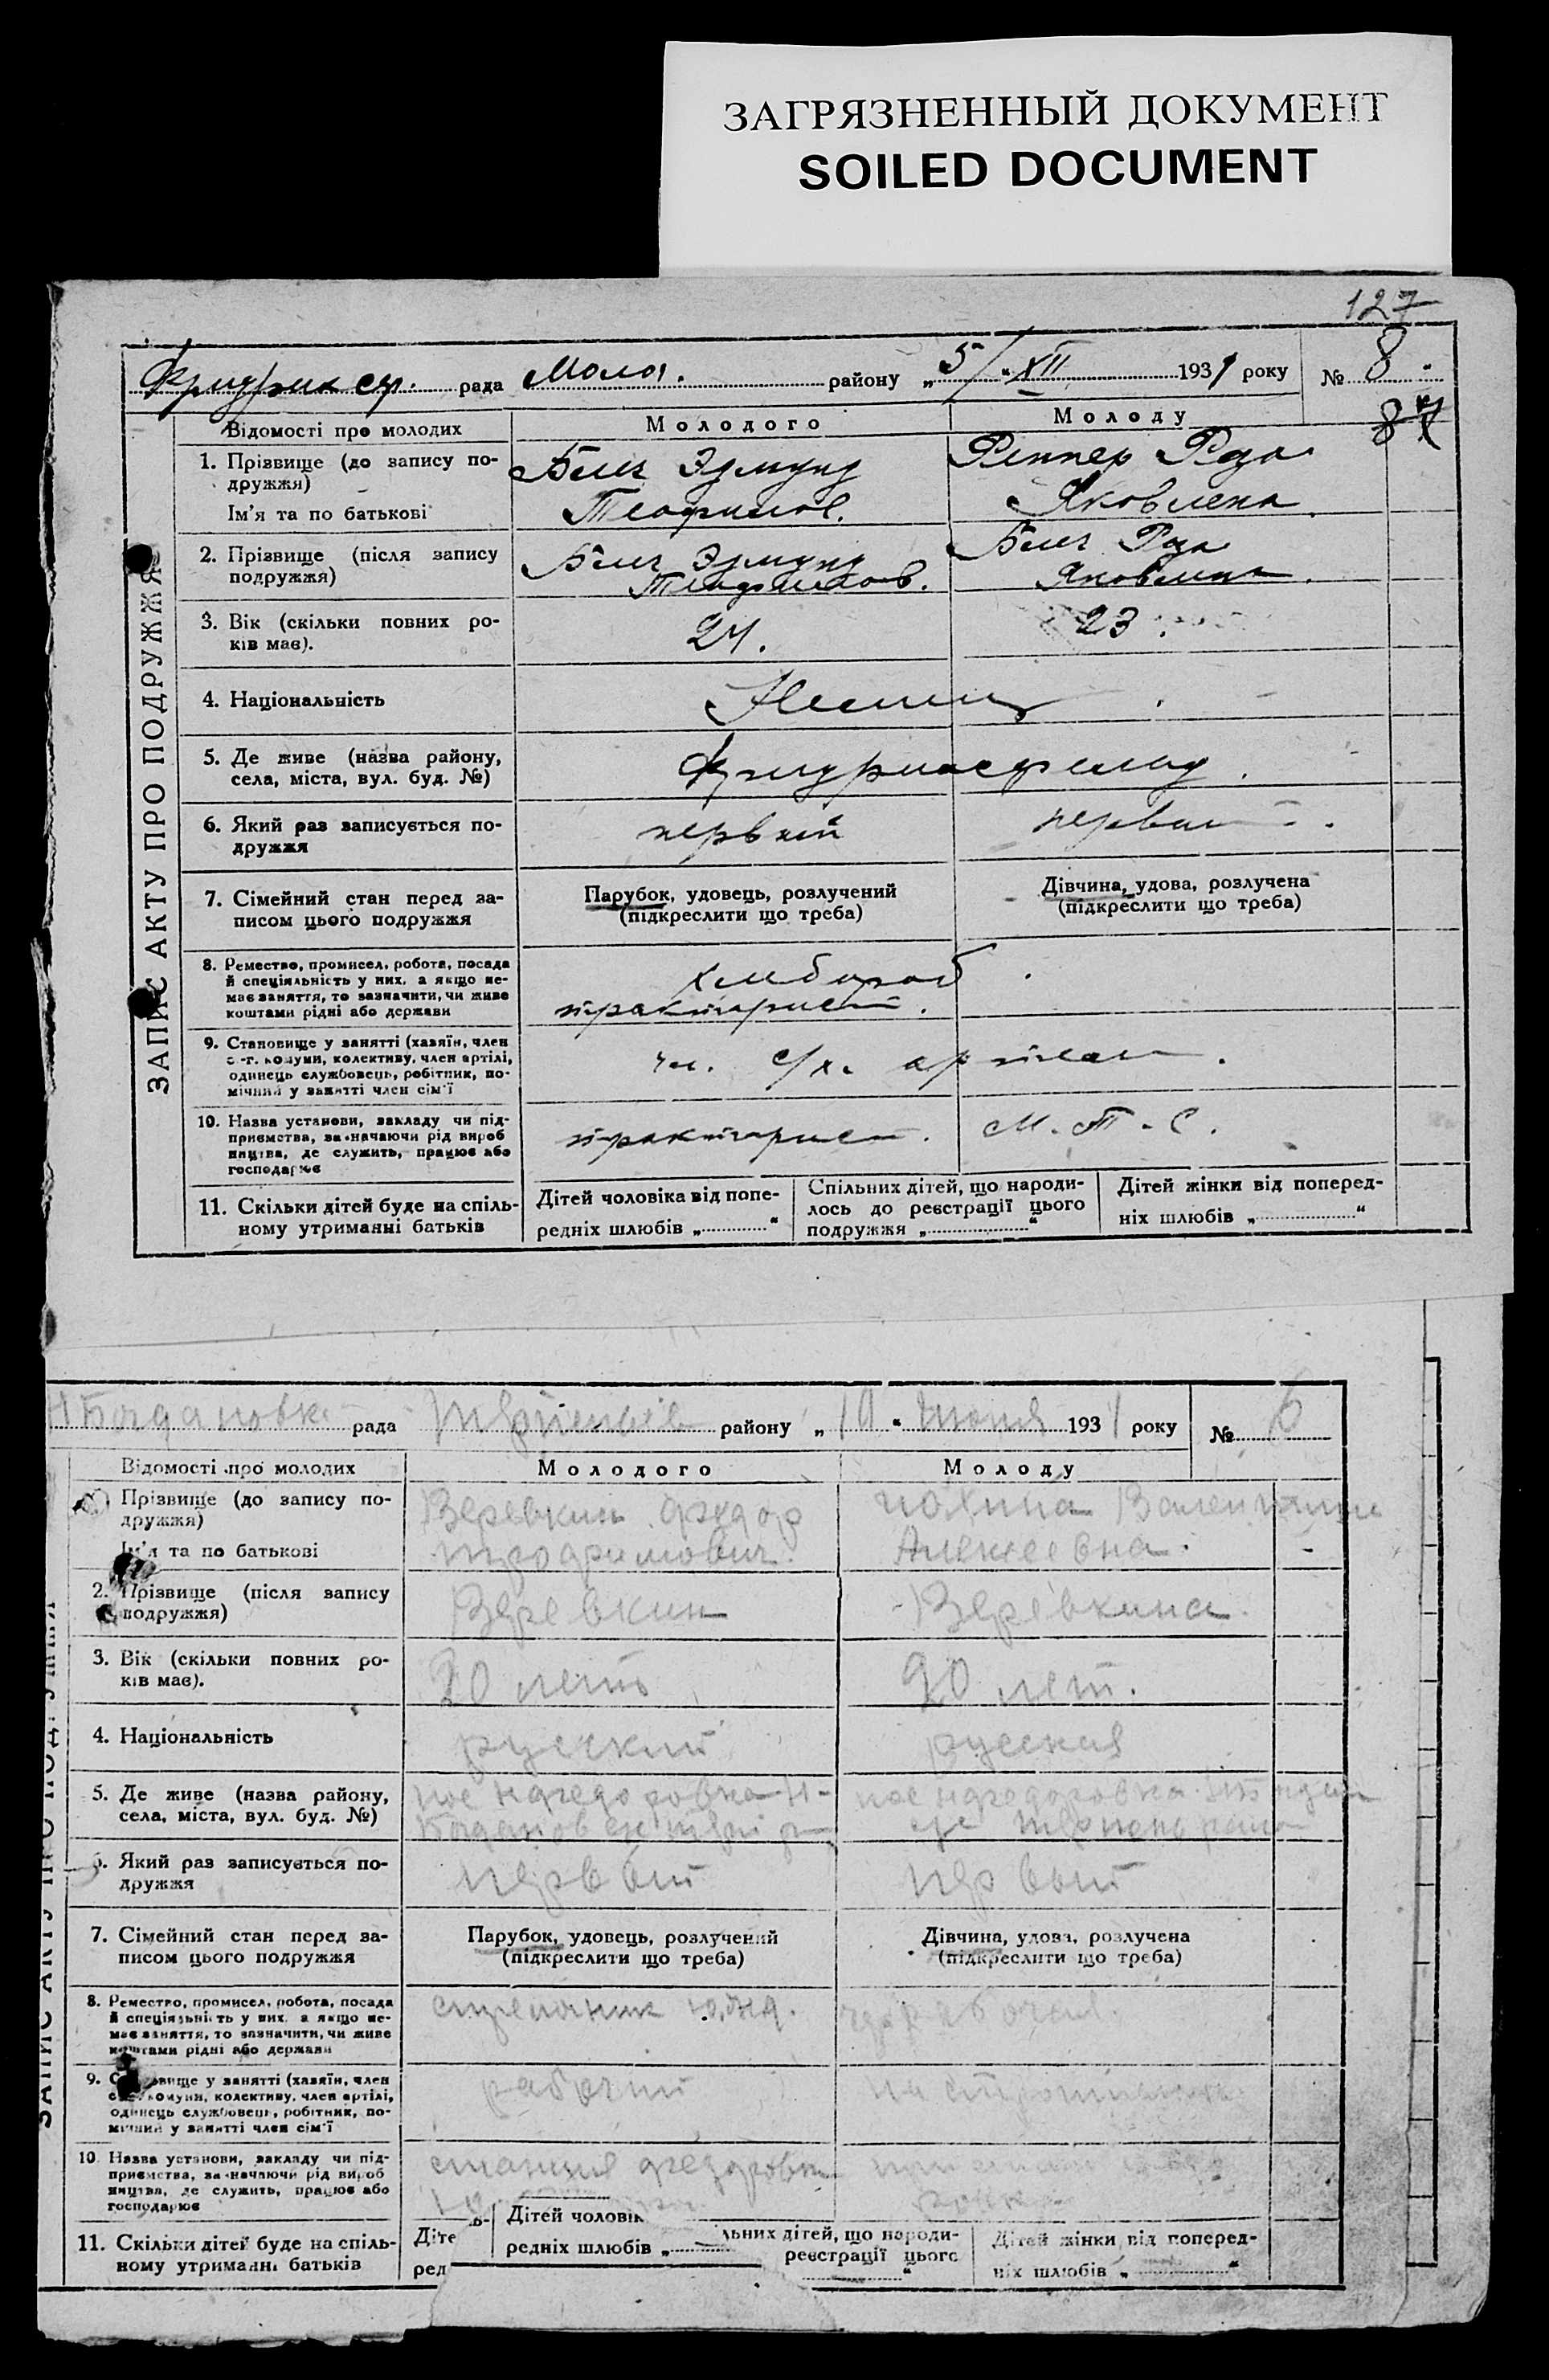 ЗАГРЯЗНЕННЫЙ ДОКУМЕНТ
SOILED DOCUMENT
127
рада Молоч. району „5/“ XII 1931 року № 8
87
ЗАПИС АКТУ ПРО ПОДРУЖЖЯ
Відомості про молодих
Молодого
Молоду
1. Прізвище (до запису по-
дружжя)
Ім’я та по батькові
Эдмунд
Теофилов.
Яковлевна
2. Прізвище (після запису
подружжя)
Эдмунд
Теофилов.
Яковлевна.
3. Вік (скільки повних ро-
ків має).
24.
23.
4. Національність
Немцы
5. Де живе (назва району,
села, міста, вул. буд. №)
Фридрихсфельд.
6. Який раз записується по-
дружжя
первый
первый
7. Сімейний стан перед за-
писом цього подружжя
Парубок, удовець, розлучений
(підкреслити що треба)
Дівчина, удова, розлучена
(підкреслити що треба)
8. Ремество, промисел, робота, посада
й спеціяльність у них, а якщо не-
має заняття, то зазначити, чи живе
коштами рідні або держави
хлебороб
тракторист.
9. Становище у занятті (хазяїн, член
с.-г. комуни, колективу, член артілі,
одинець службовець, робітник, по-
мічний у занятті член сім’ї
чл. с/х. артели.
10. Назва установи, закладу чи під-
приємства, зазначаючи рід вироб
ництва, де служить, працює або
господарює
тракторист. М.Т.С.
11. Скільки дітей буде на спіль-
ному утриманні батьків
Дітей чоловіка від попе-
редніх шлюбів „ “
Спільних дітей, що народи-
лось до реєстрації цього
подружжя „ “
Дітей жінки від поперед-
ніх шлюбів „ “
Н Богдановка рада району „10“ июня 1931 року № 6
Відомості про молодих
Молодого
Молоду
Прізвище (до запису по-
дружжя)
Ім’я та по батькові
Веревкин
Трофимович
Валентина
Алексеевна
2. Прізвище (після запису
подружжя)
Веревкин
Веревкина
3. Вік (скільки повних ро-
ків має).
20 лет
20 лет.
4. Національність
русский
русская
5. Де живе (назва району,
села, міста, вул. буд. №)
пос
пос
6. Який раз записується по-
дружжя
первый
первый
7. Сімейний стан перед за-
писом цього подружжя
Парубок, удовець, розлучений
(підкреслити що треба)
Дівчина, удова, розлучена
(підкреслити що треба)
8. Ремество, промисел, робота, посада
й спеціяльність у них, а якщо не-
має заняття, то зазначити, чи живе
коштами рідні або держави
9. Становище у занятті (хазяїн, член
комуни, колективу, член артілі,
одинець службовець, робітник, по-
мічний у занятті член сім’ї
рабочий
10. Назва установи, закладу чи під-
приємства, зазначаючи рід вироб
ництва, де служить, працює або
господарює
станция
11. Скільки дітей буде на спіль-
ному утриманні батьків
Діте
ред
Дітей чоловік
редніх шлюбів „
льних дітей, що народи-
реєстрації цього
“
Дітей жінки від поперед-
ніх шлюбів „ “